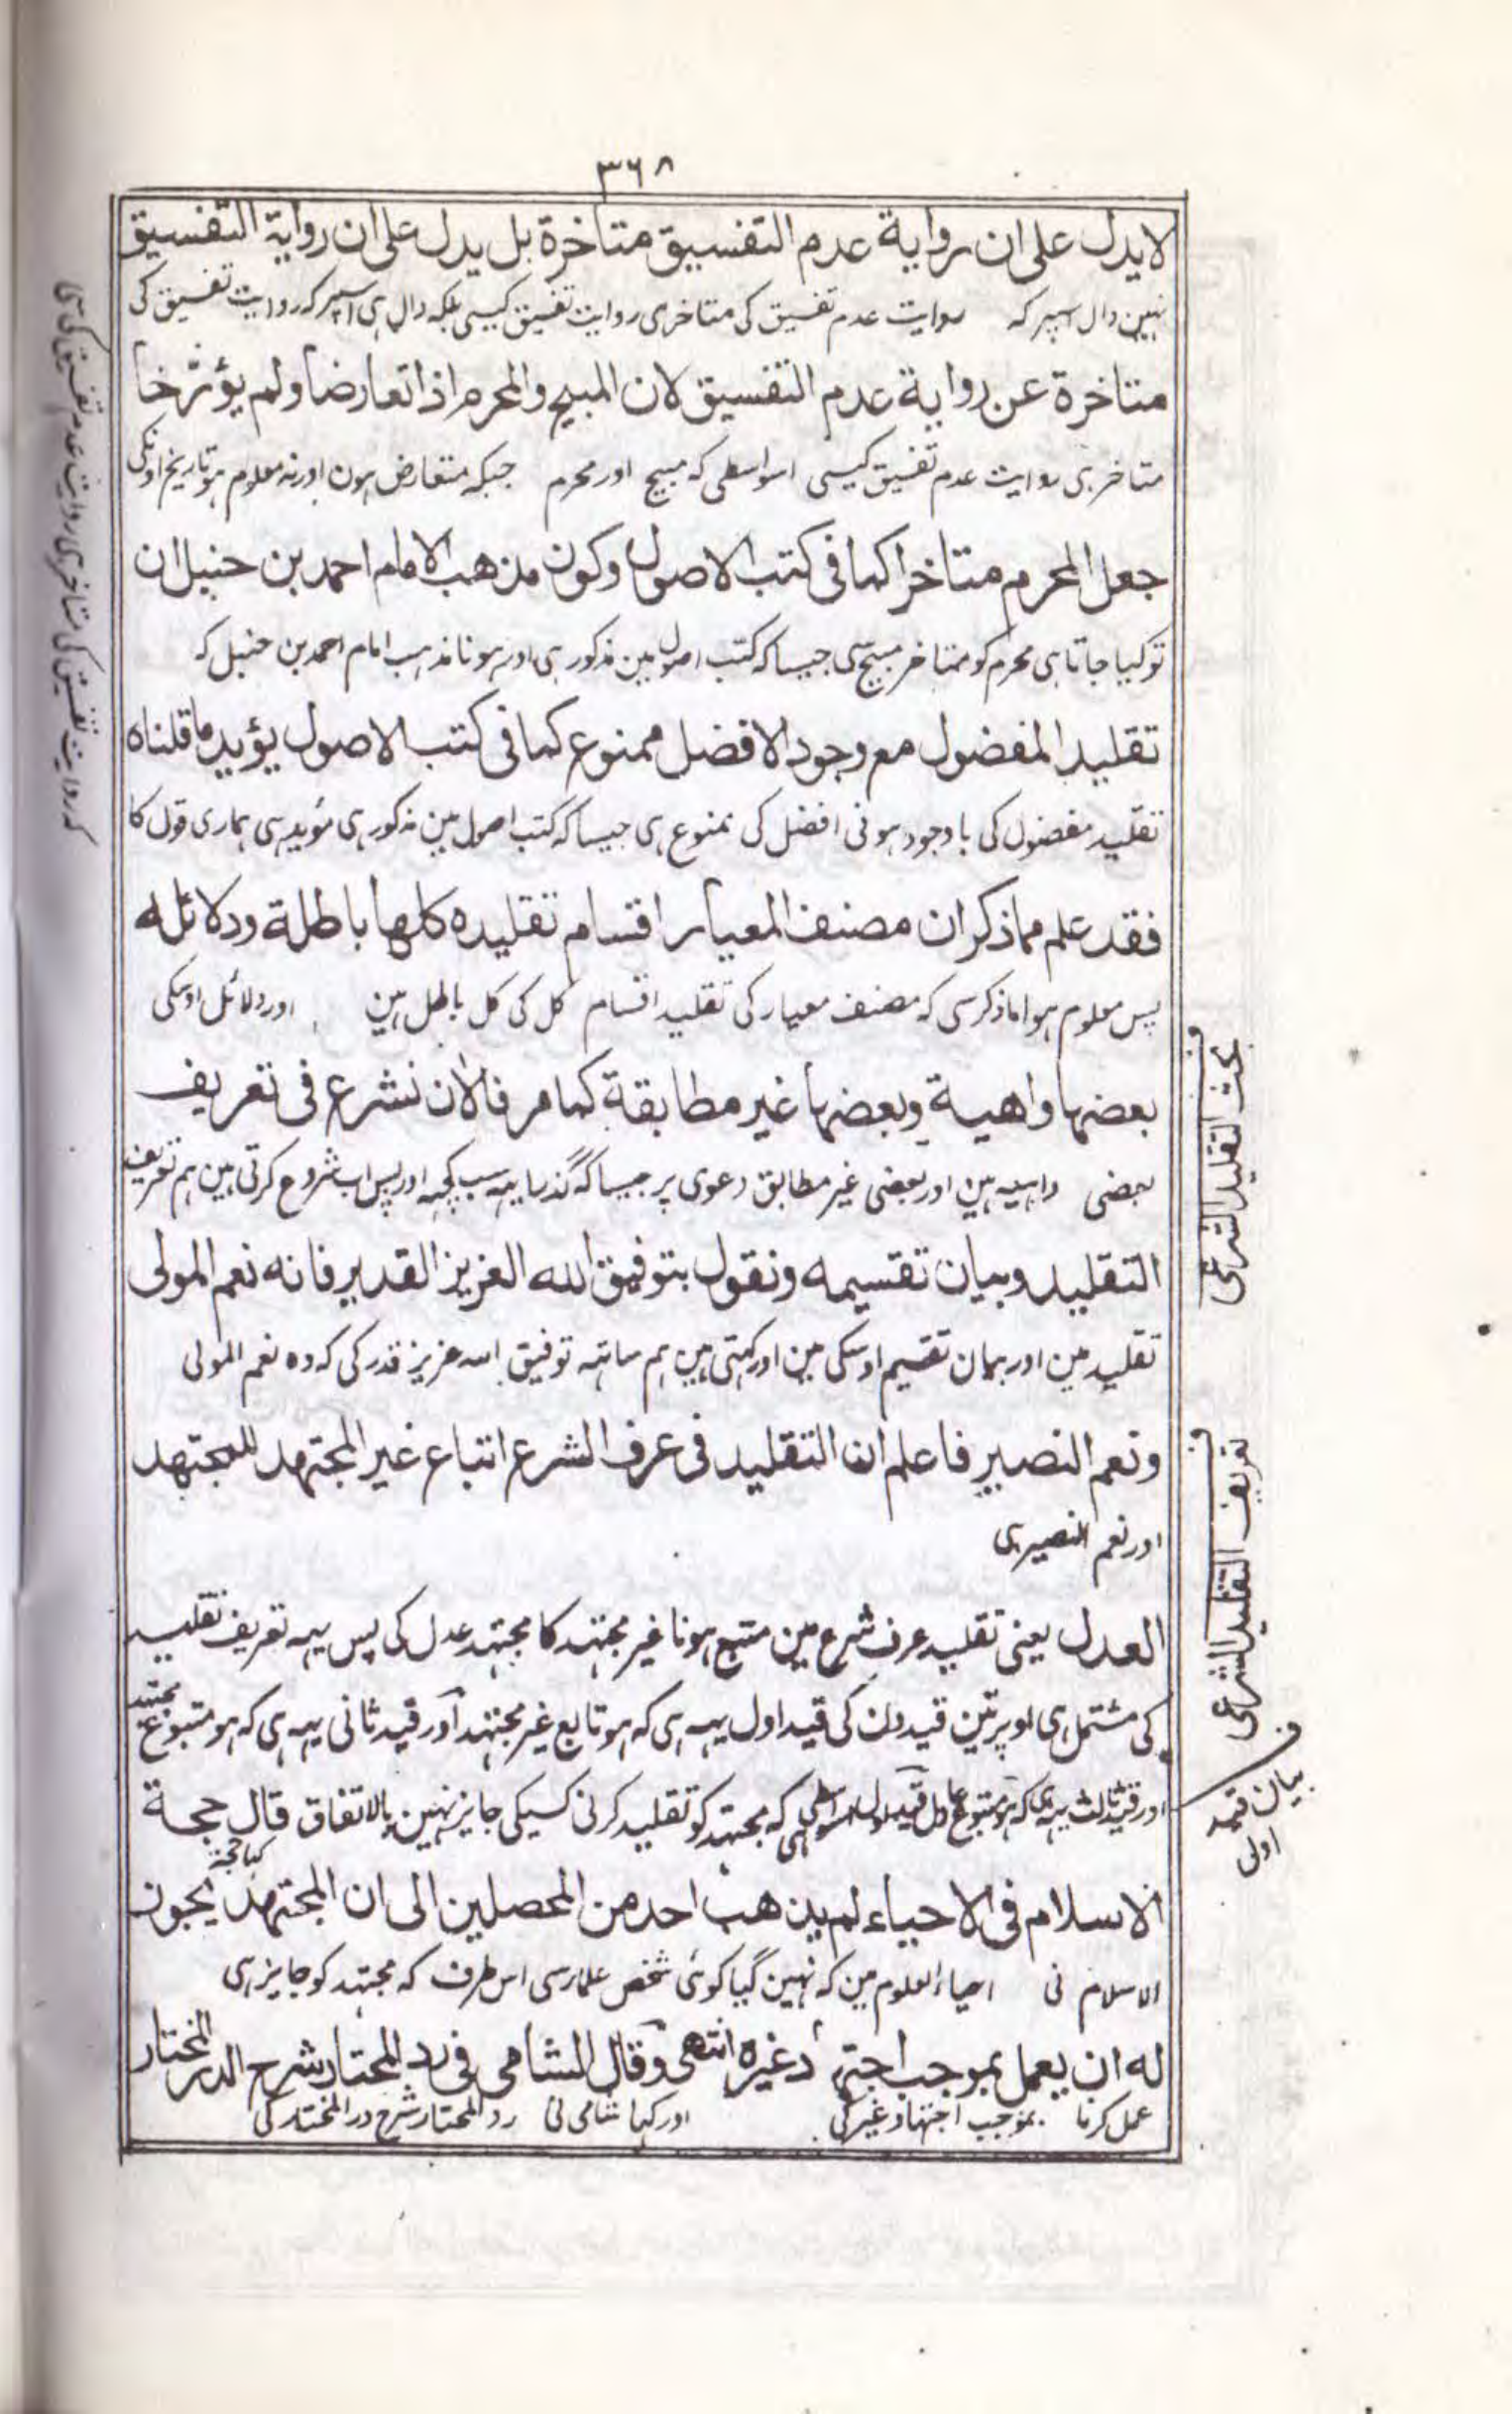 ٣٦٨
لا يدل على ان رواية عدم التفسيق متاخرة بل يدل على ان رواية التفسيق
نہین دال اسپر کہ روایت عدم تفسیق کی متاخر ہی روایت تفسیق کیسی بلکہ دال ہی اسپر کہ روایت تفسیق کی
متاخرة عن رواية عدم التفسيق لان المبيح والمحرم اذا تعارضا ولم يؤثر خا
متاخر ہی روایت عدم تفسیق کیسی اسواسطی کہ مبیح اور محرم جبکہ متعارض ہون اور نہ معلوم ہو تاریخ اونکی
جعل المحرم متاخرا كما فى كتب الاصول وكون مذهب الامام احمد بن حنبل ان
تو کیا جاتا ہی محرم کو متاخر مبیح سی جیسا کہ کتب اصول مین مذکور ہی اور ہونا مذہب امام احمد بن حنبل کہ
تقليد المفضول مع وجود الافضل ممنوع كما فى كتب الاصول يؤيد ما قلناه
تقلید مفضول کی باوجود ہونی افضل کی ممنوع ہی جیسا کہ کتب اصول مین مذکور ہی مؤید ہی ہماری قول کا
فقد علم مما ذكر ان مصنف المعيار اقسام تقليده كلها باطلة ودلائله
پس معلوم ہوا ماذکر سی کہ مصنف معیار کی تقلید اقسام کل کی کل باطل ہین اور دلائل اوسکی
بعضها واهية وبعضها غير مطابقة كما مر فالان نشرع فى تعريف
بعضی واہیہ ہین اور بعضی غیر مطابق دعوی پر جیسا کہ گذرا یہہ سب کچہہ اور پس اب شروع کرتی ہین ہم تعریف
التقليد وبيان تقسيمه ونقول بتوفيق الله العزيز القدير فانه نعم المولى
تقلید مین اور بیان تقسیم اوسکی مین اور کہتی ہین ہم ساتہہ توفیق اللہ عزیز قدر کی کہ وہ نعم المولی
ونعم النصير فاعلم ان التقليد فى عرف الشرع اتباع غير المجتهد للمجتهد
اور نعم النصیر ہی
العدل یعنی تقلید عرف شرع مین متبع ہونا غیر مجتہد کا مجتہد عدل کی پس یہہ تعریف تقلید
کی مشتمل ہی اوپر تین قیدون کی قید اول یہہ ہی کہ ہو تابع غیر مجتہد اور قید ثانی یہہ ہی کہ ہو متبوع مجتہد
اور قید ثالث یہہ ہی کہ ہو متبوع عادل قید اول اسواسطی ہی کہ مجتہد کو تقلید کرنی کسیکی جایز نہین بالاتفاق قال حجة
کہا حجة
الاسلام فى الاحياء لم يذهب احد من المحصلين الى ان المجتهد يجوز
الاسلام نی احیاء العلوم مین کہ نہین گیا کوئی شخص علما سی اس طرف کہ مجتہد کو جایز ہی
له ان يعمل بموجب اجتهاد غيره انتهى وقال الشامى فى رد المحتار شرح الدر المختار
عمل کرنا بموجب اجتہاد غیر کی اور کہا شامی نی رد المحتار شرح در المختار کی
کہ روایت تفسیق کی متاخر ہی روایت عدم تفسیق کی سی
بحث التقليد الشرعى
تعريف التقليد الشرعى
بیان قید اول